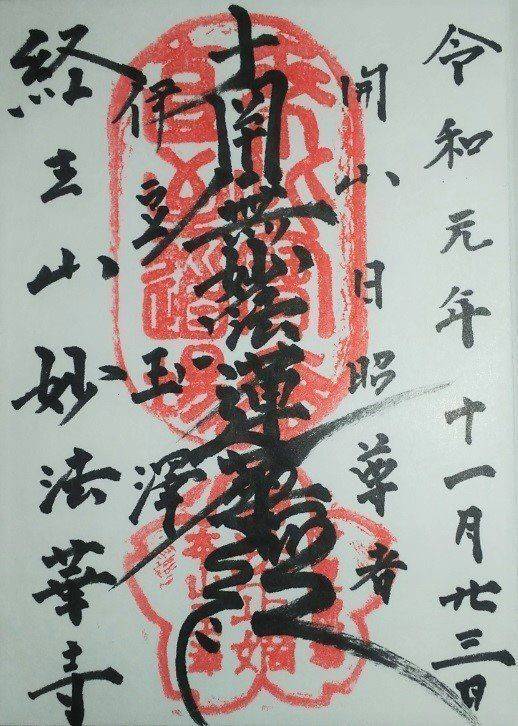 令和元年十一月廿三日
開山日昭尊者
南無妙法蓮華経
伊豆玉澤
経王山妙法華寺